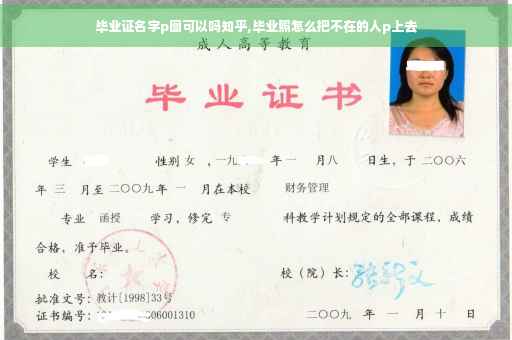 毕业证名字p图可以吗知乎,毕业照怎么把不在的人p上去
成人高等教育
毕业证书
学生 性别 女 ，一九 年 一 月八 日生，于 二〇〇六
年 三 月至 二〇〇九 年 一 月在本校 财务管理
专业 函授 学习，修完 专 科教学计划规定的全部课程，成绩
合格，准予毕业。
校 名： 校（院）长：
批准文号：教计[1998]33号
证书编号： 06001310 二〇〇九 年 一 月 十 日